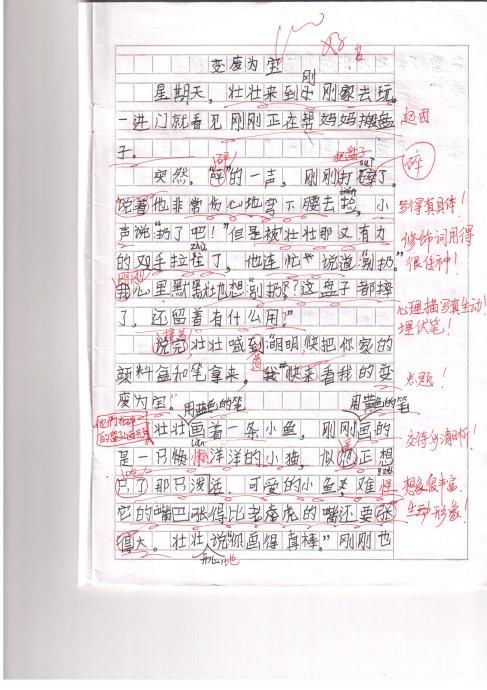 变废为宝
好
刚
星期天，壮壮来到小刚家去玩。
一进门就看见刚刚正在帮妈妈搬盘
起因
子。
碎
把盘子
突然。"碎"的一声，刚刚打碎了。
说着他非常伤心地弯下腰去捡，小
写得真具体！
声说"扔了吧！"但是被壮壮那又有力
修饰词用得
的双手拉住了，他连忙说道"别扔。"
很传神！
刚刚
我心里默默地想"别扔？这盘子都摔
心理描写真生动！
了，还留着有什么用？"
埋伏笔！
说完壮壮喊到"明明快把你家的
道
颜料盒和笔拿来，我快来看我的变
点题！
废为宝。"
用蓝色的笔
用黄色的笔
壮壮画着一条小鱼，刚刚画的
交待的清晰！
lǎn
是一只懒懒洋洋的小猫，似乎正想
只了那只泼活、可爱的小鱼，难怪
想象很丰富，
它的嘴巴张得比老虎的嘴还要张
生动形象！
得大。壮壮说"你画得真棒。"刚刚也
开心地